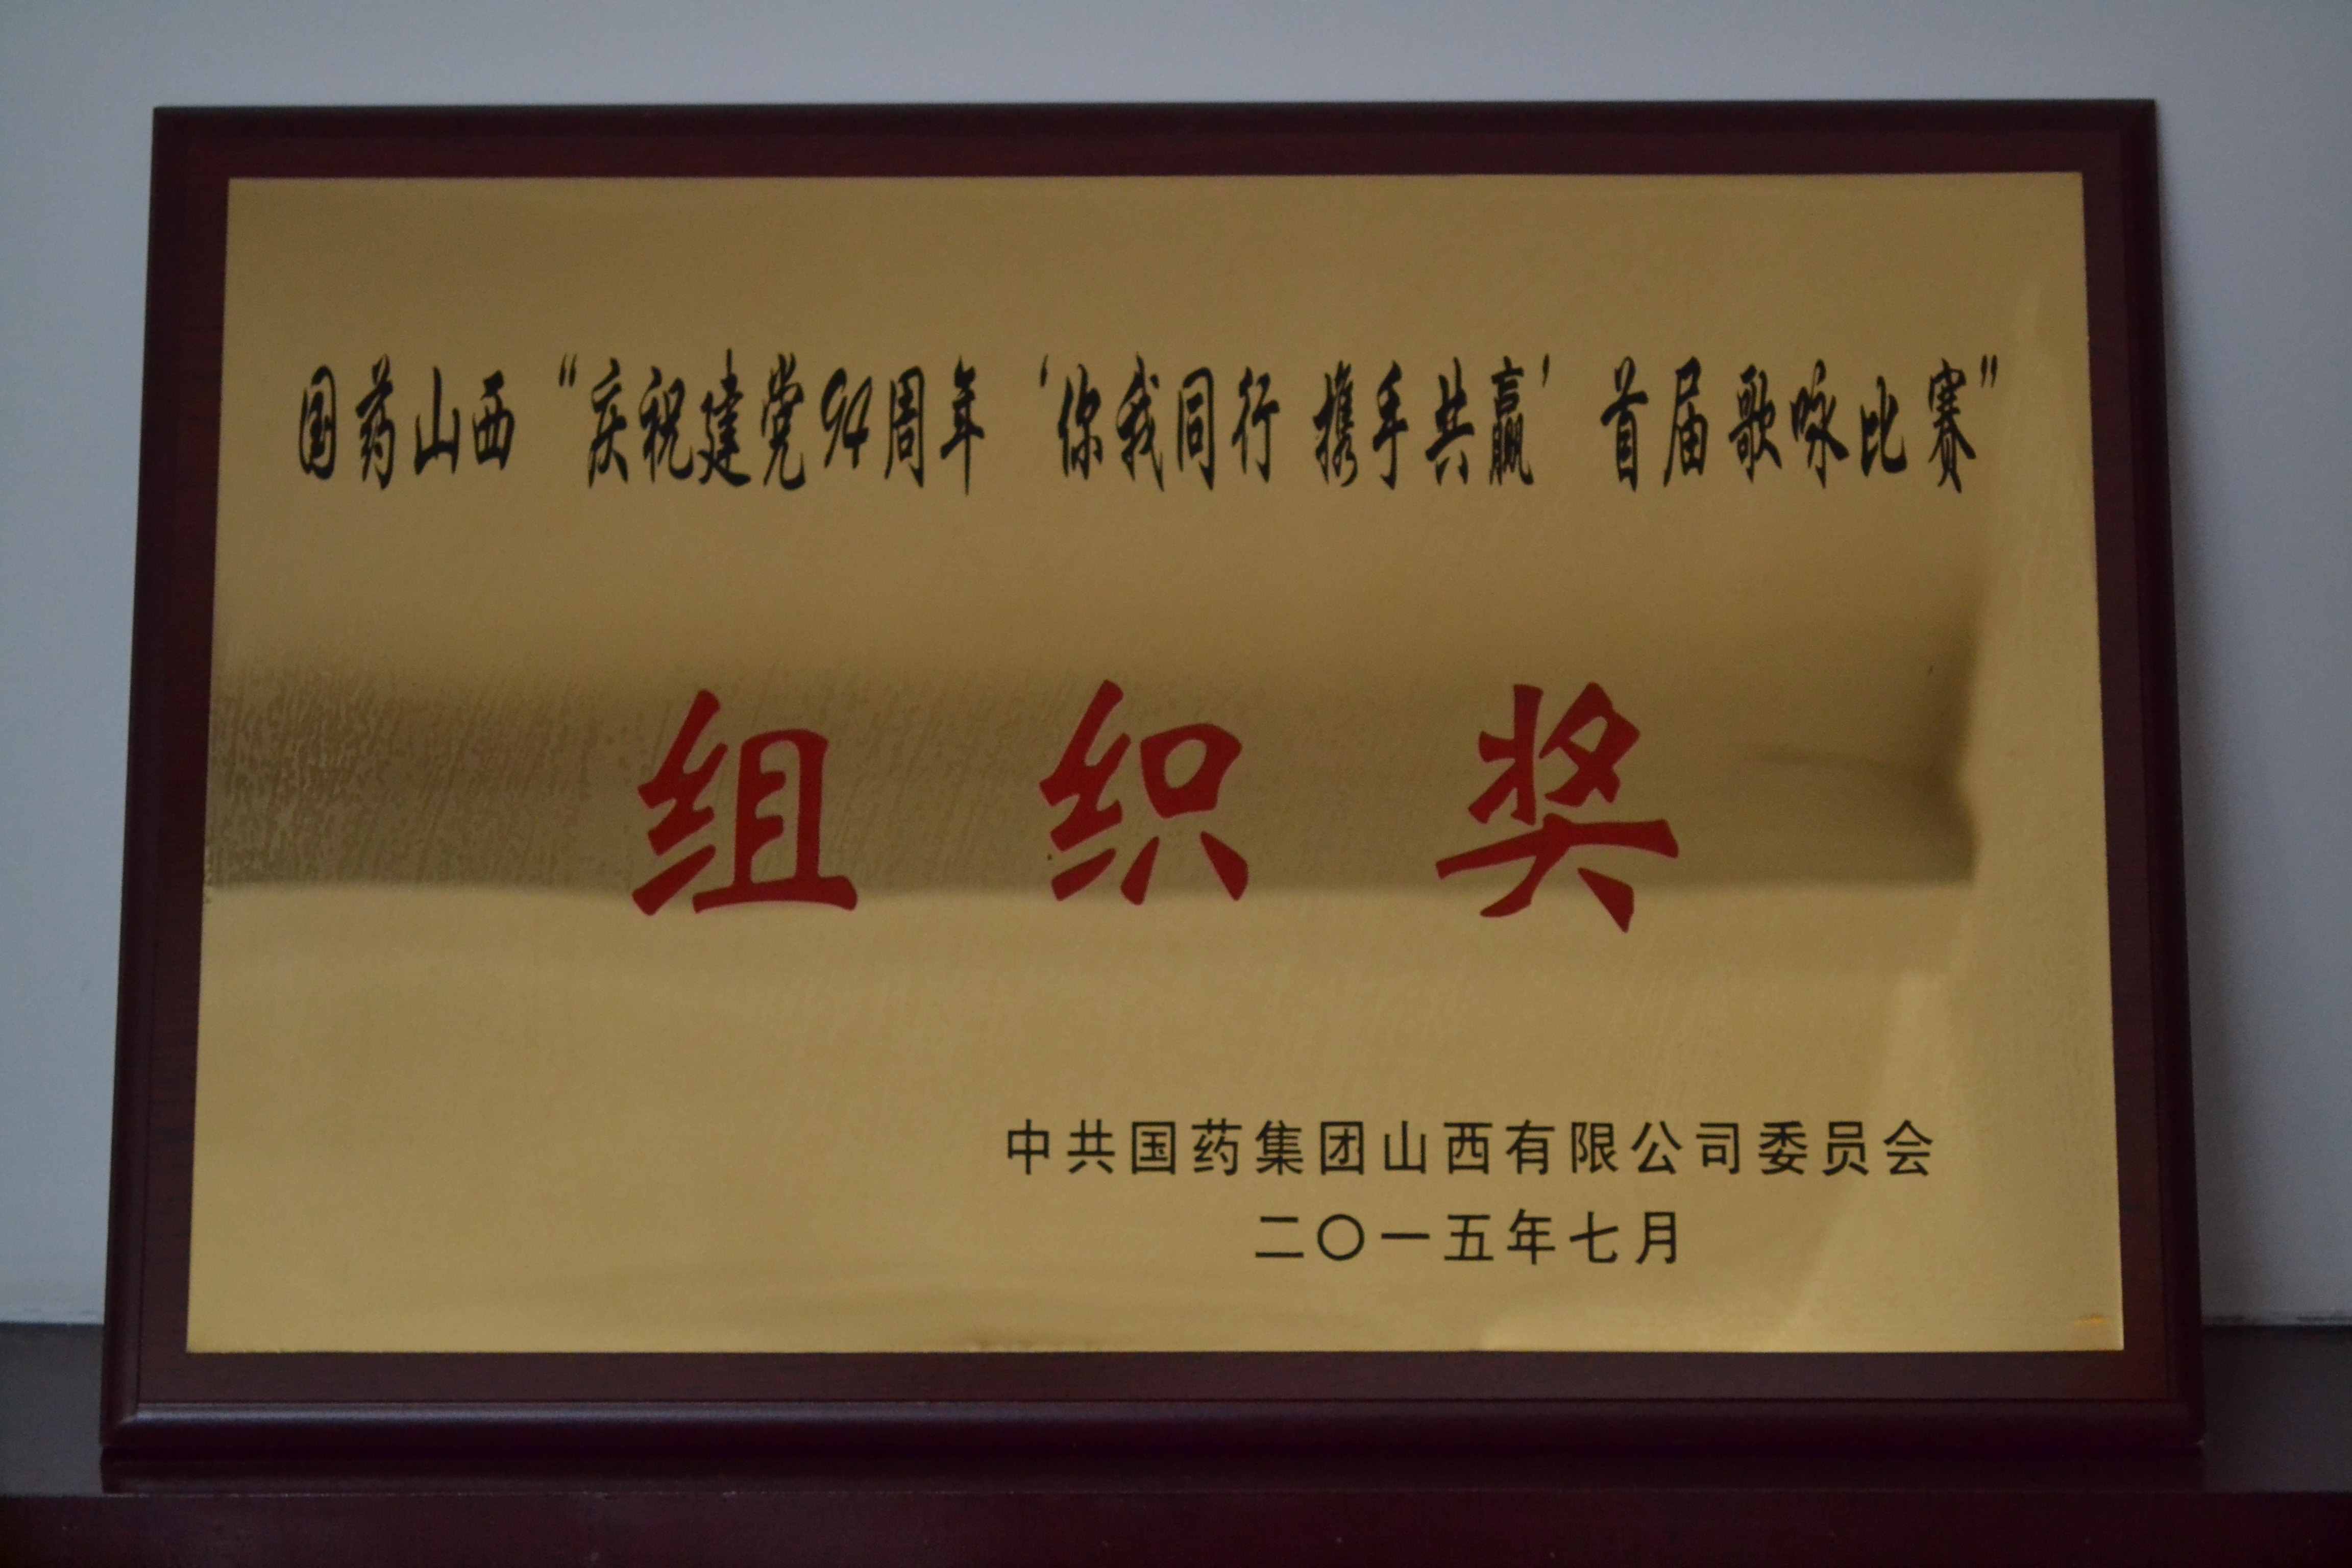 国药山西“庆祝建党94周年‘你我同行 携手共赢’首届歌咏比赛”
组织奖
中共国药集团山西有限公司委员会
二〇一五年七月